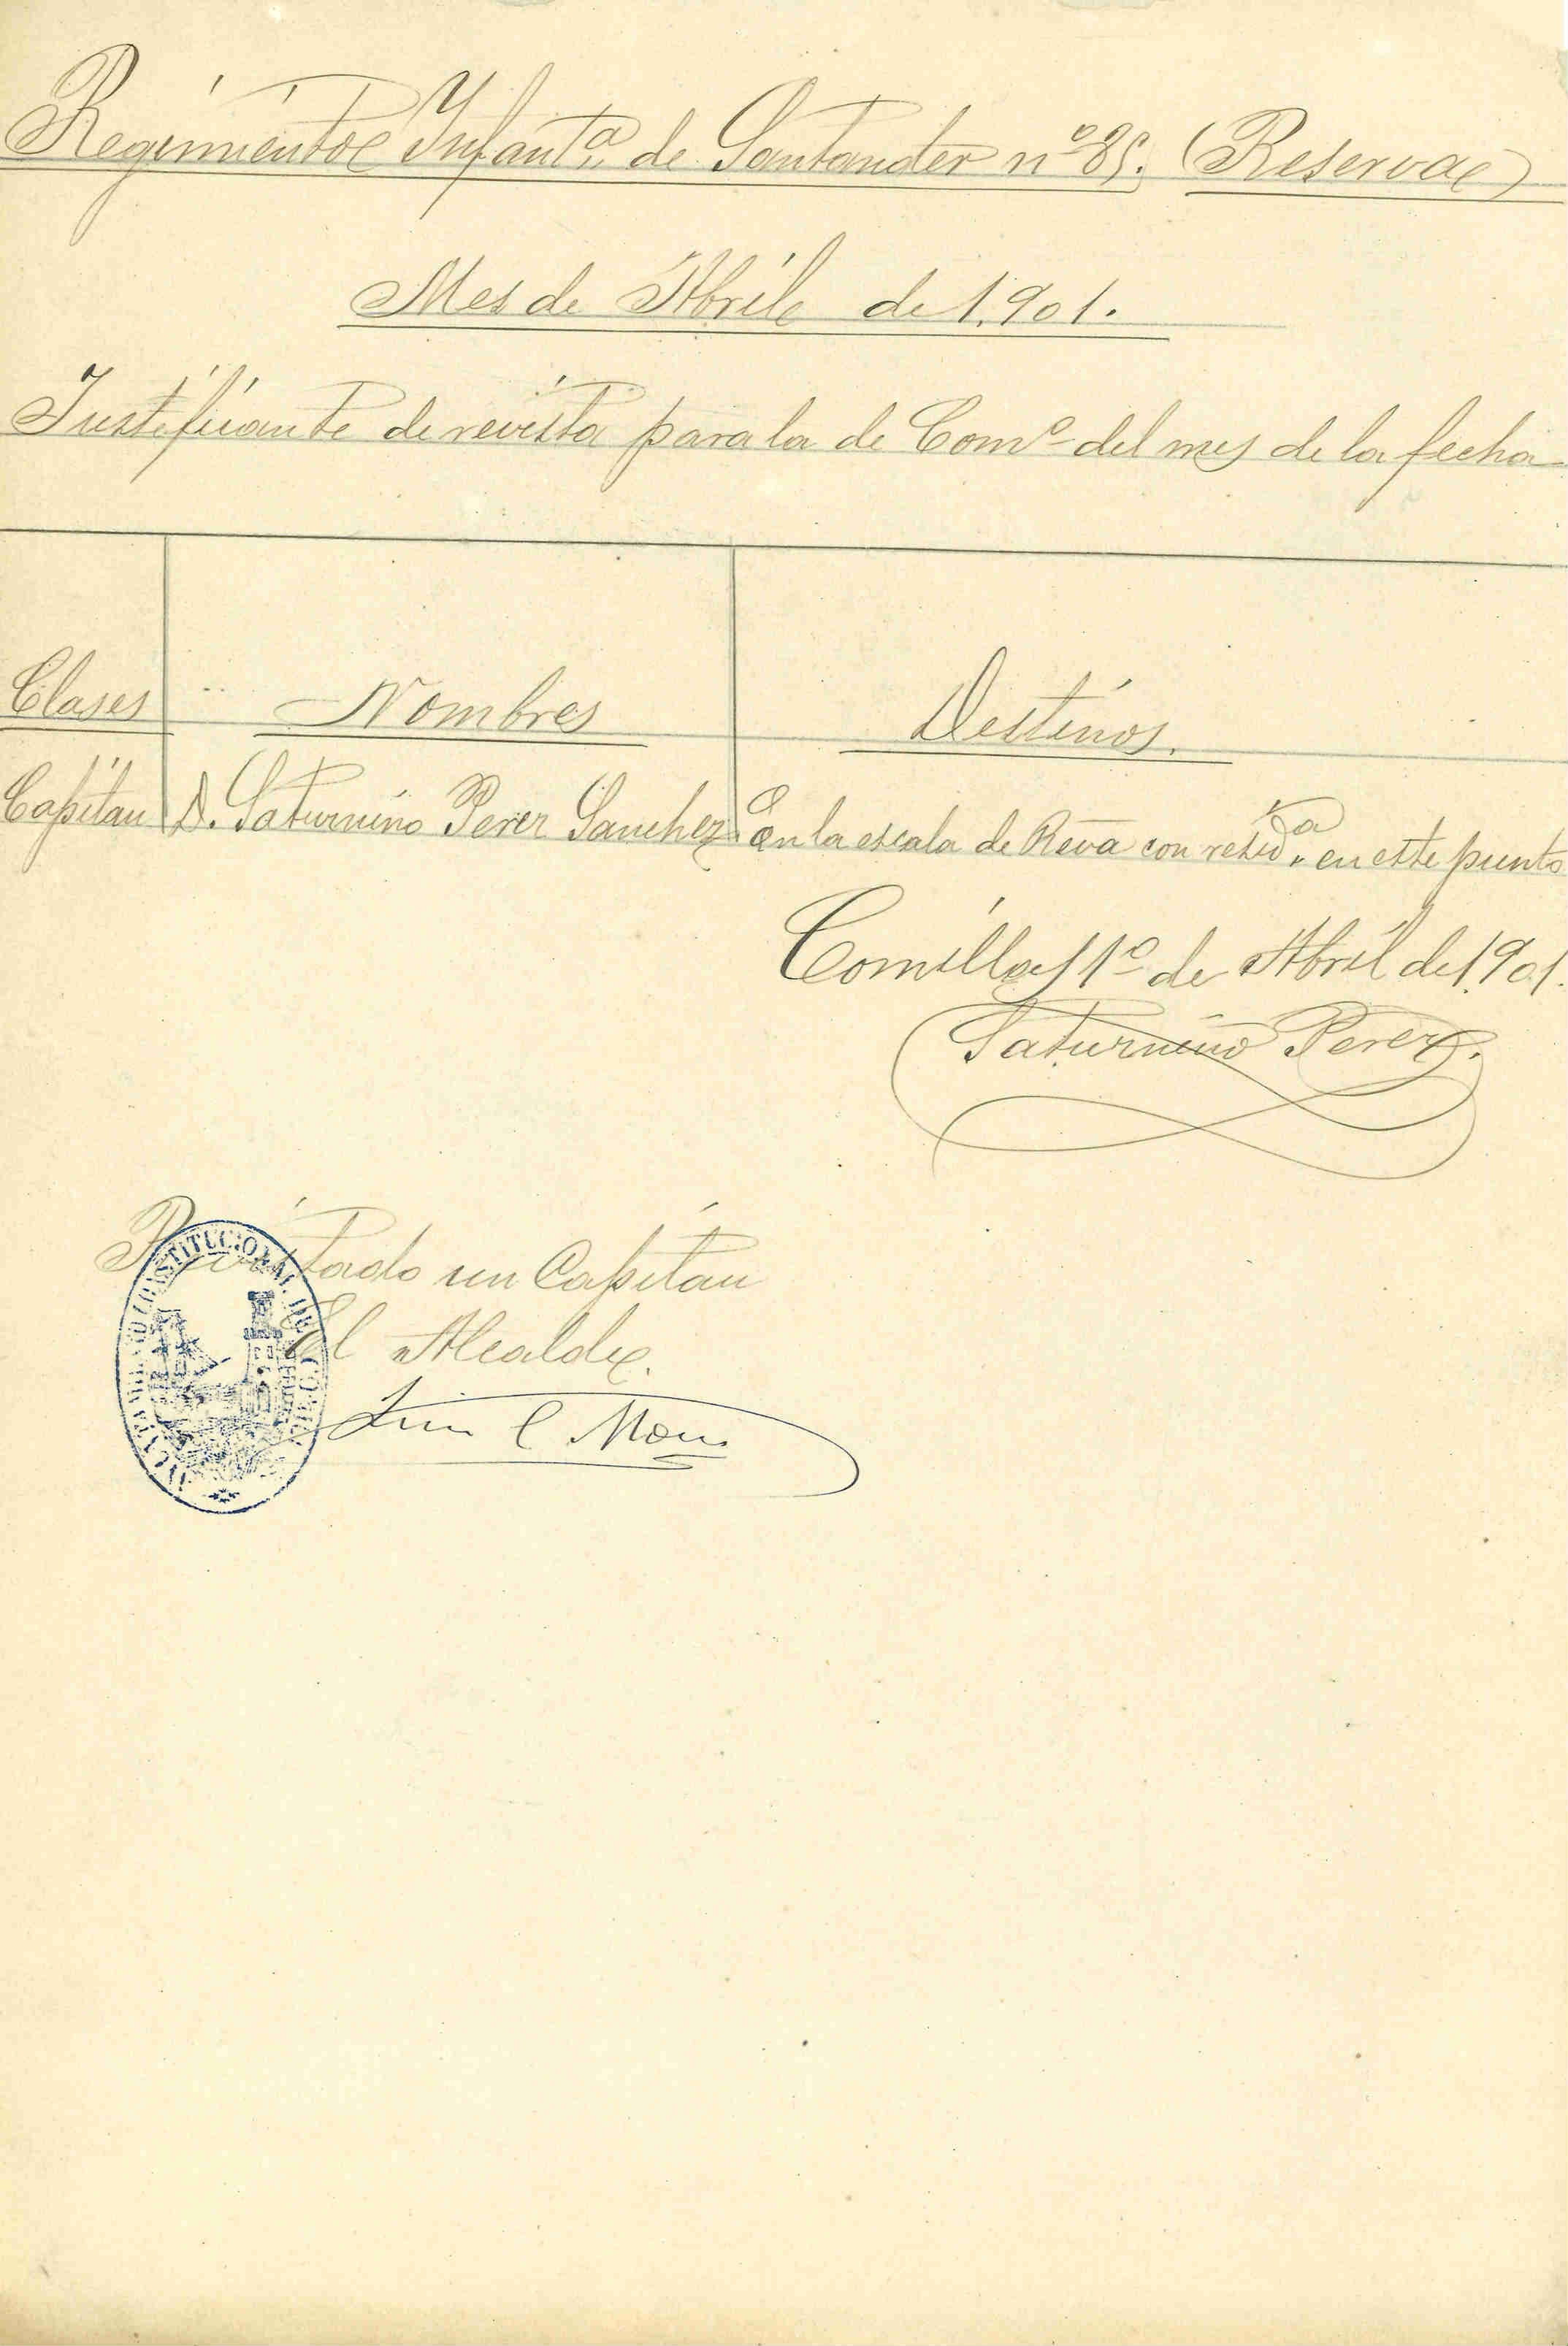 Regimiento Infantª de Santander nº 85. (Reserva)
Mes de Abril de 1.901.
Justificante de revista para la de Comº del mes de la fecha
Clases Nombres Destinos.
Capitan D. Saturnino Perez Sanchez En la escala de Rva con residª en este punto
Comillas 1º de Abril de 1.901.
Saturnino Perez.
Revistado un Capitan
El Alcalde.
CONSTITUCIONAL DE